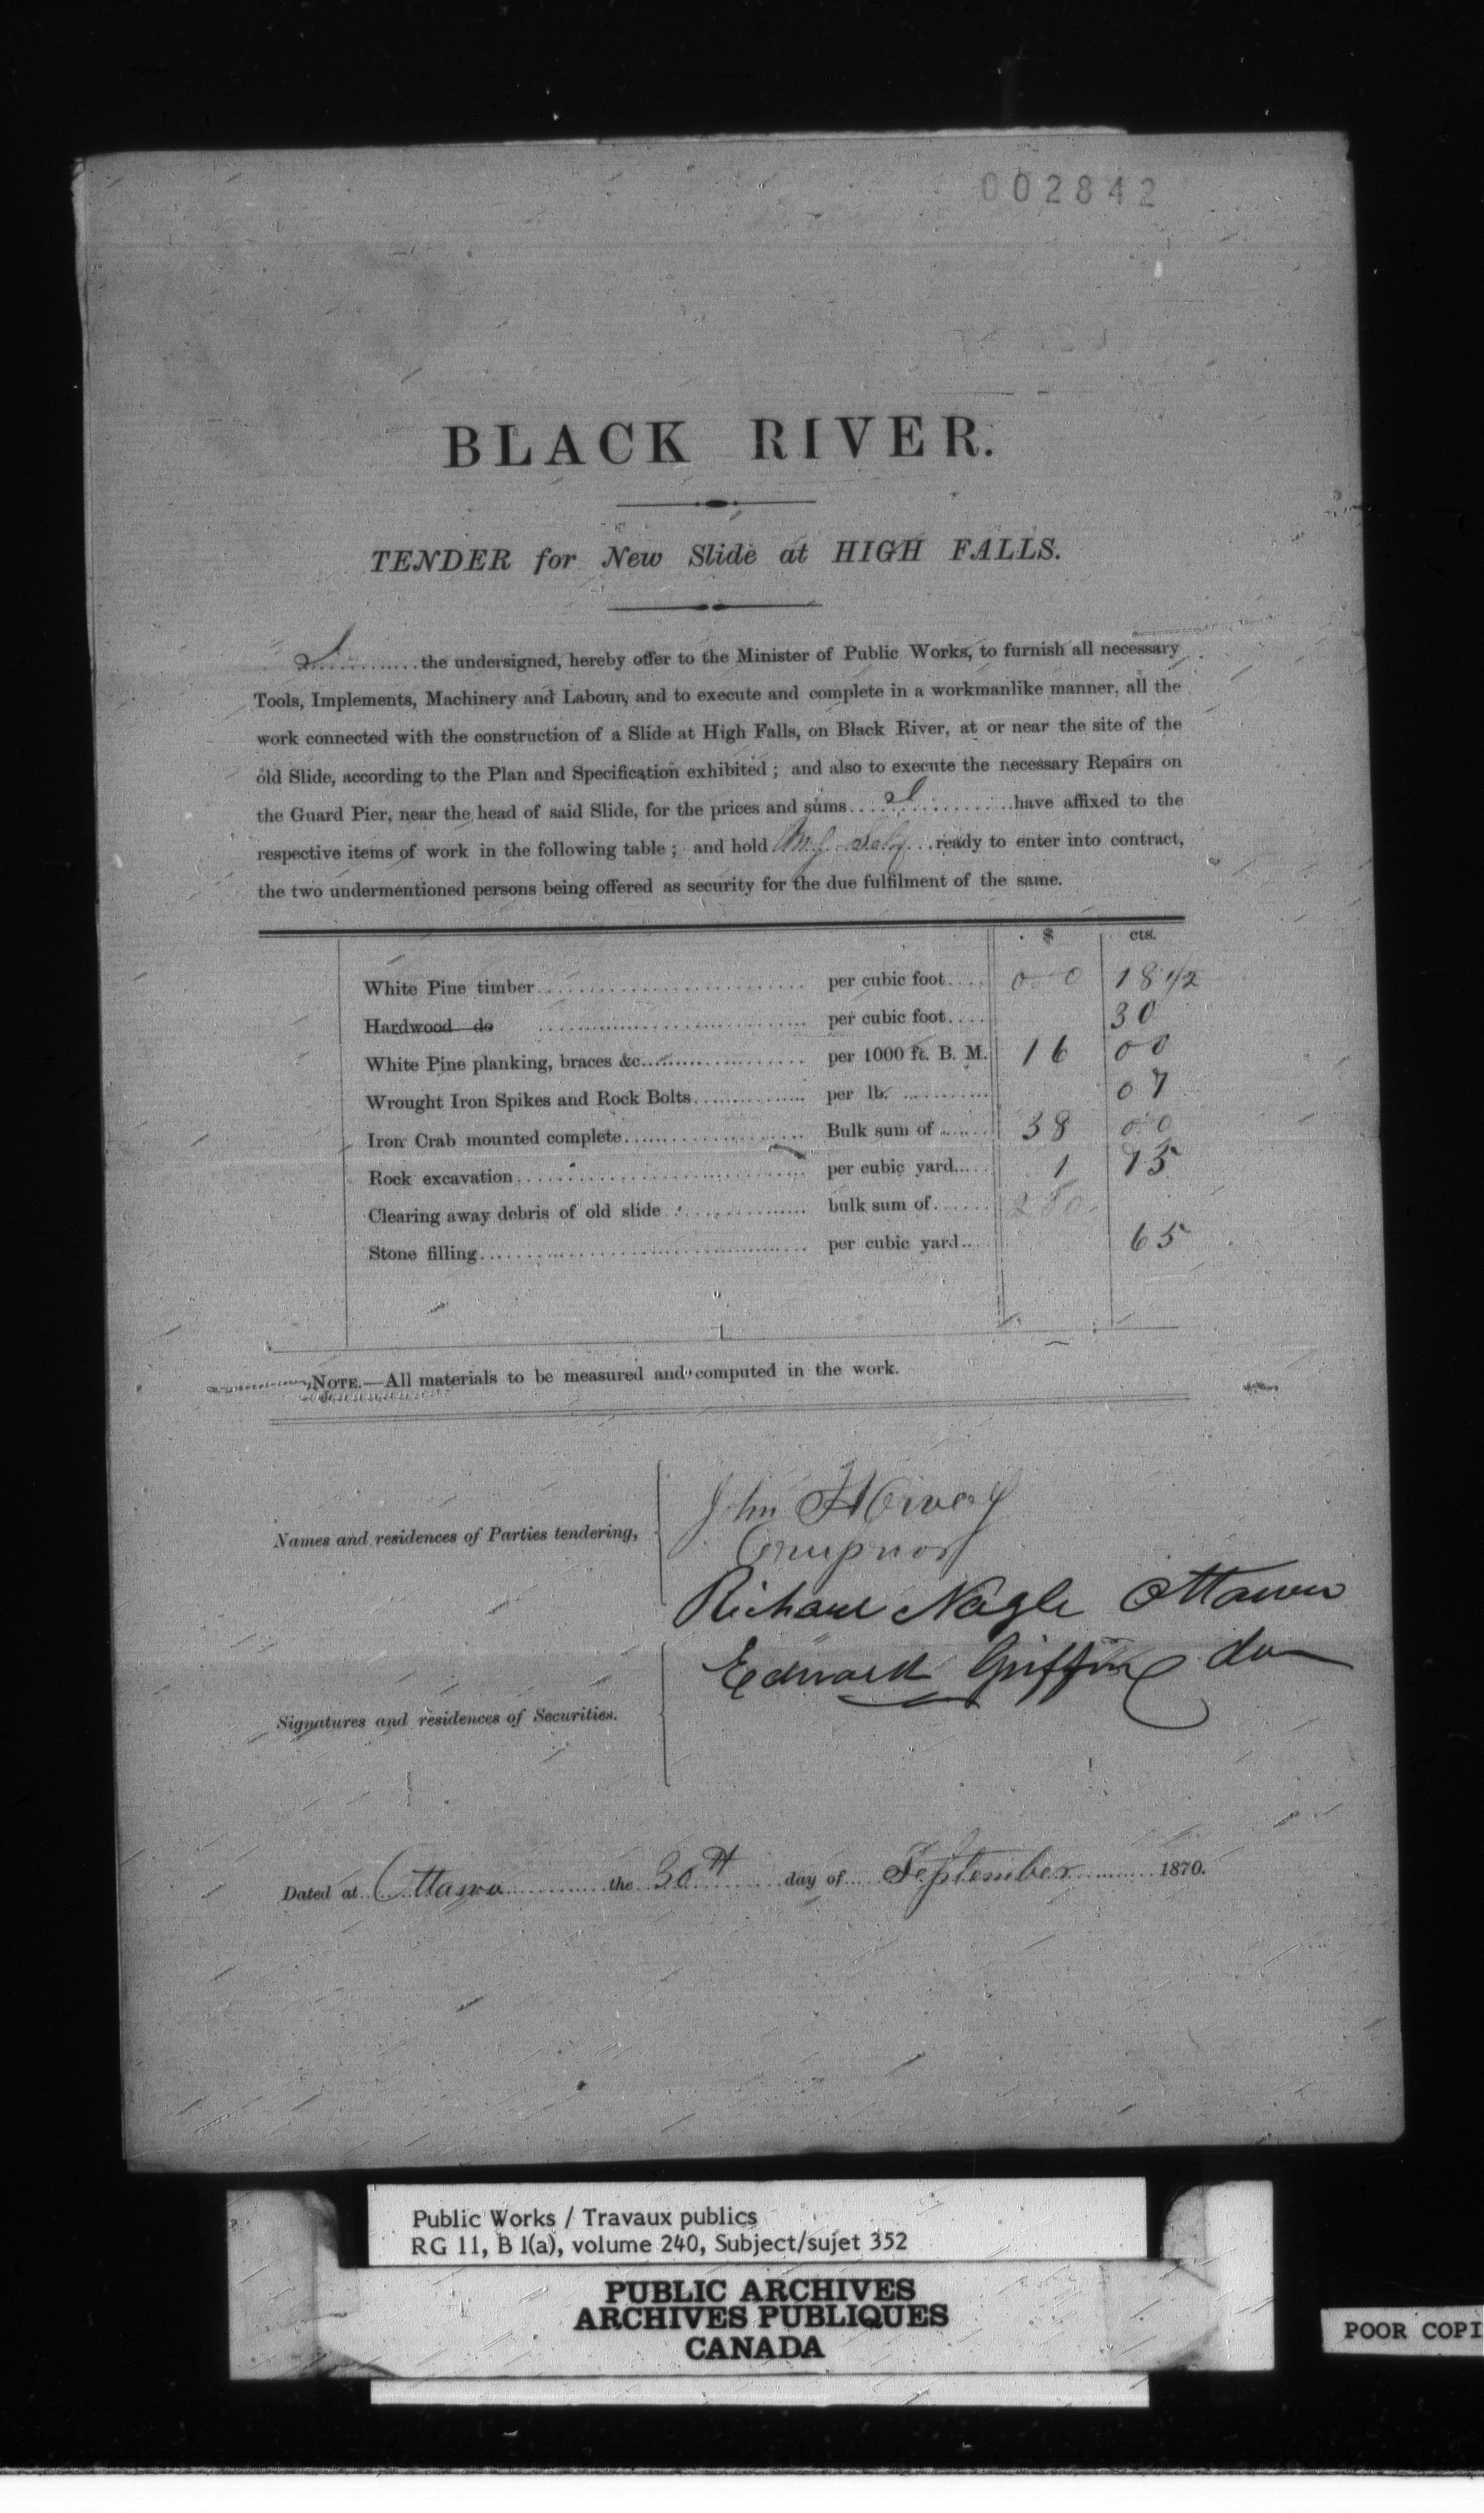 002842
BLACK RIVER.
TENDER for New Slide at HIGH FALLS.
I ............ the undersigned, hereby offer to the Minister of Public Works, to furnish all necessary
Tools, Implements, Machinery and Labour, and to execute and complete in a workmanlike manner, all the
work connected with the construction of a Slide at High Falls, on Black River, at or near the site of the
old Slide, according to the Plan and Specification exhibited ; and also to execute the necessary Repairs on
the Guard Pier, near the head of said Slide, for the prices and sums .... I ............ have affixed to the
respective items of work in the following table ; and hold My Self ... ready to enter into contract,
the two undermentioned persons being offered as security for the due fulfilment of the same.
$ cts.
White Pine timber ........ per cubic foot .... 0 0 18 1/2
Hardwood do ........ per cubic foot .... 30
White Pine planking, braces &c. ........ per 1000 ft. B. M. 16 00
Wrought Iron Spikes and Rock Bolts ........ per lb. ........ 07
Iron Crab mounted complete ........ Bulk sum of ........ 38 00
Rock excavation ........ per cubic yard .... 1 75
Clearing away debris of old slide ........ bulk sum of ........ 280
Stone filling ........ per cubic yard .... 65
NOTE.—All materials to be measured and computed in the work.
Names and residences of Parties tendering,
John
Richard Nagle Ottawa
Edward Griffin do
Signatures and residences of Securities.
Dated at Ottawa ........ the 30th ........ day of .... September ........ 1870.
Public Works / Travaux publics
RG 11, B 1(a), volume 240, Subject/sujet 352
PUBLIC ARCHIVES
ARCHIVES PUBLIQUES
CANADA
POOR COPI